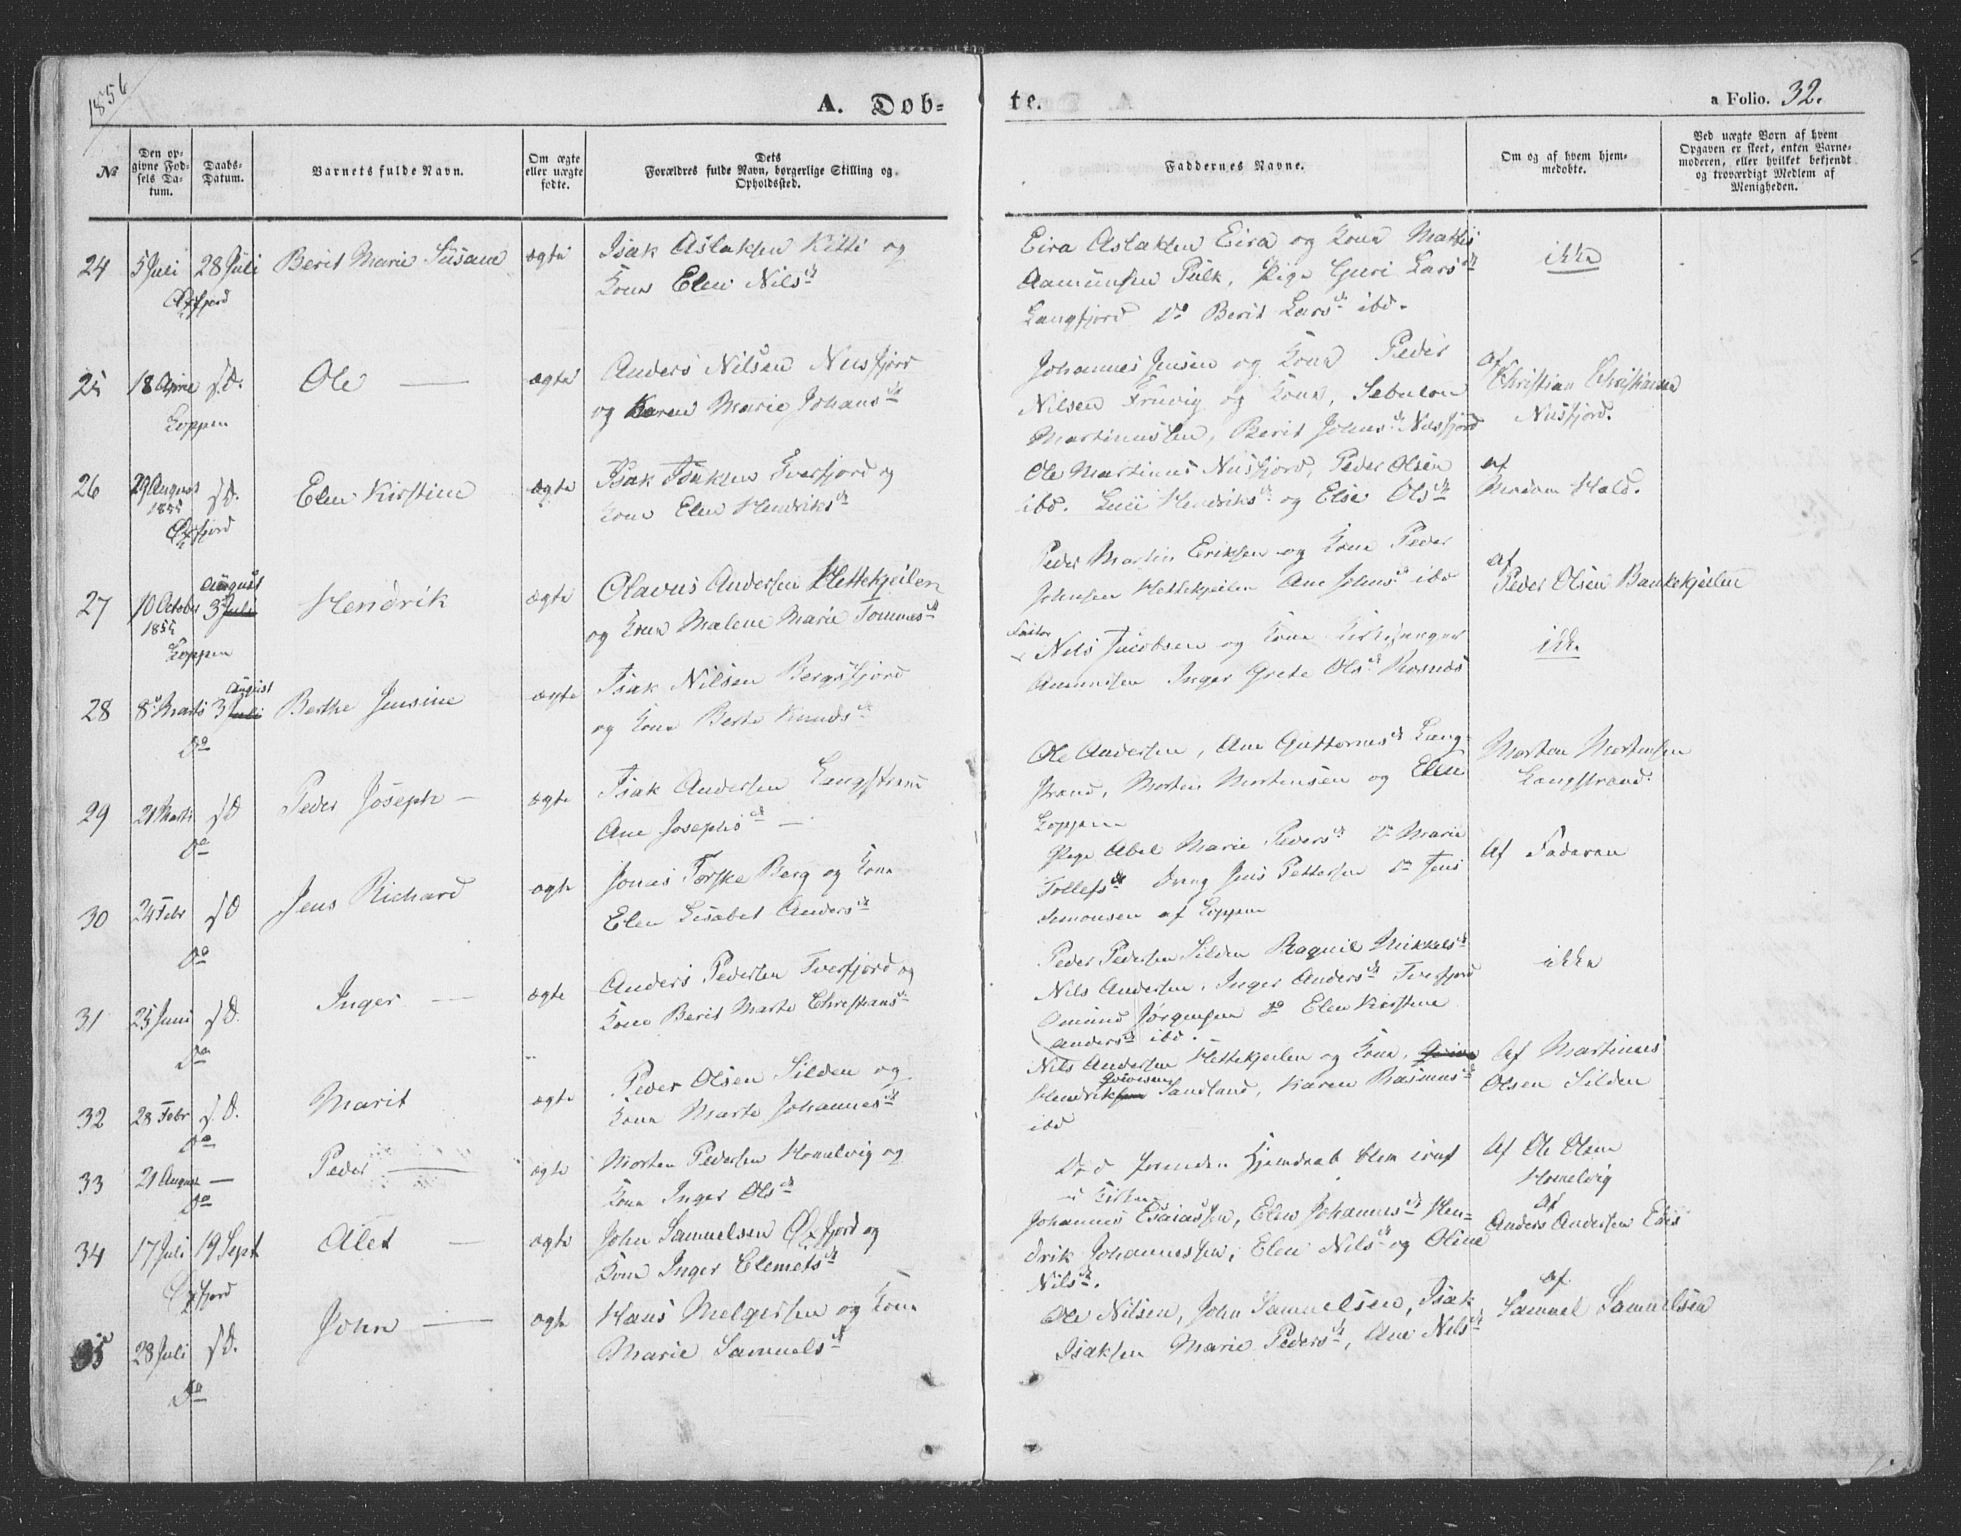 1856
A. Døb-
te.
a Folio. 32.
№
Den op-
givne Fød-
sels Da-
tum.
Daabs-
Datum.
Barnets fulde Navn.
Om ægte
eller uægte
fødte.
Dets
Forældres fulde Navn, borgerlige Stilling og
Opholdssted.
Faddernes Navne.
Om og af hvem hjem-
medøbte.
Ved uægte Børn af hvem
Opgaven er skeet, enten Barne-
moderen, eller hvilket bekjendt
og troværdigt Medlem af
Menigheden.
24 5 Juli 28 Juli Berit Marie Susane ægte Isak Aslaksen Kitti og
Kone Elen Nilsd
Øxfjord
Eira Aslaksen Eira og Kone Mathis
Aamundsen Pulk, Pige Guri Larsd
Langfjord Do Berit Larsd ibd.
ikke
25 18 s.D. Ole — ægte Anders Nilsen Nusfjord
og Karen Marie Johansd
Loppen
Johannes Jensen og Kone Peder
Nilsen Fruvig og Kone, Sebulon
Martinussen, Berit Johnsd Nusfjord
af
Christian Christiansen
Nusfjord.
26 29 August s.D. Elen Kirstine ægte Isak Isaksen Tverfjord og
1855
Kone Elen Hendriksd
Øxfjord
Ole Martinus Nusfjord, Peder Olsen
ibd. Hendriksd og Else Olsd
af
Madam Hald.
27 10 October August 3 Juli Hendrik ægte Olavus Andersen Hettekjeilen
1855
og Kone Malene Marie Tommesd
Loppen
Peder Martin Eriksen og Kone Peder
Johnsen Hettekjeilen Ane Johnsd ibd
af
Peder Olsen Bankekjeilen
28 8 Marts August 3 Juli Berthe Jensine ægte Isak Nilsen Bergsfjord
og Kone Berte Knudsd
Do
Nils Jacobsen og Kone Kirkesanger
Amundsen Inger Grete Olsd
ikke
29 21 Marts s.D Peder Joseph — ægte Isak Andersen Langstrand
Ane Josephsd —
Do
Ole Andersen, Ane Guttormsd Lang-
strand, Morten Mortensen og Elen
Loppen
Morten Mortensen
Langstrand.
30 24 Febr s.D Jens Richard ægte Jonas Torske Berg og Kone
Elen Lisabet Andersd
Do
Pige Abel Marie Pedersd Do Marie
Tollefsd Dreng Jens Pettersen Do Jens
Simonsen af Loppen
Af Faderen
31 25 Juni s.D. Inger — ægte Anders Pedersen Tverfjord og
Kone Berit Marte Christiansd
Do
Peder Pedersen Silden Ragnil Mikkelsd
Nils Andersen, Inger Andersd Tverfjord
Amund Jørgensen Do Elen Kirstine
Andersd ibd.
ikke
32 28 Febr s.D. Marit ægte Peder Olsen Silden og
Kone Marte Johannesd
Do
Nils Andersen Hettekjeilen og Kone,
Hendriksen Sandland, Karen Rasmusd
ibd
Af Martinus
Olsen Silden
33 21 August — Peder — ægte Morten Pedersen Komelvig og
Kone Inger Olsd
Do
Død forinden Hjemdaab blev
i Kirken
Af Ole Olsen
Komelvig
34 17 Juli 19 Sept Alet — ægte John Samuelsen Øxfjord og
Kone Inger Clemetsd
Øxfjord
Johannes Esaiassen, Elen Johannesd Hen-
drik Johannessen, Elen Nilsd og Oline
Nilsd.
Af
Anders Andersen
35 28 Juli s.D. John — ægte Hans Melgersen og Kone
Marie Samuelsd
Do
Ole Nilsen, John Samuelsen, Isak
Isaksen Marie Pedersd, Ane Nilsd
af
Samuel Samuelsen